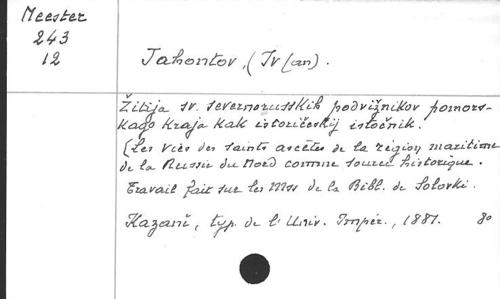 Meester
243
12
Jahontov, (Iv[an).
Žitija sv. severnorusskih podvižnikov pomors-
kago kraja kak istoričeskij istočnik.
(Les vies des saints ascètes de la région maritime
de la Russie du Nord comme source historique.
Travail fait sur les Mss de la Bibl. de Solovki.
Kazani, typ. de l'Univ. Impér., 1881. 8o